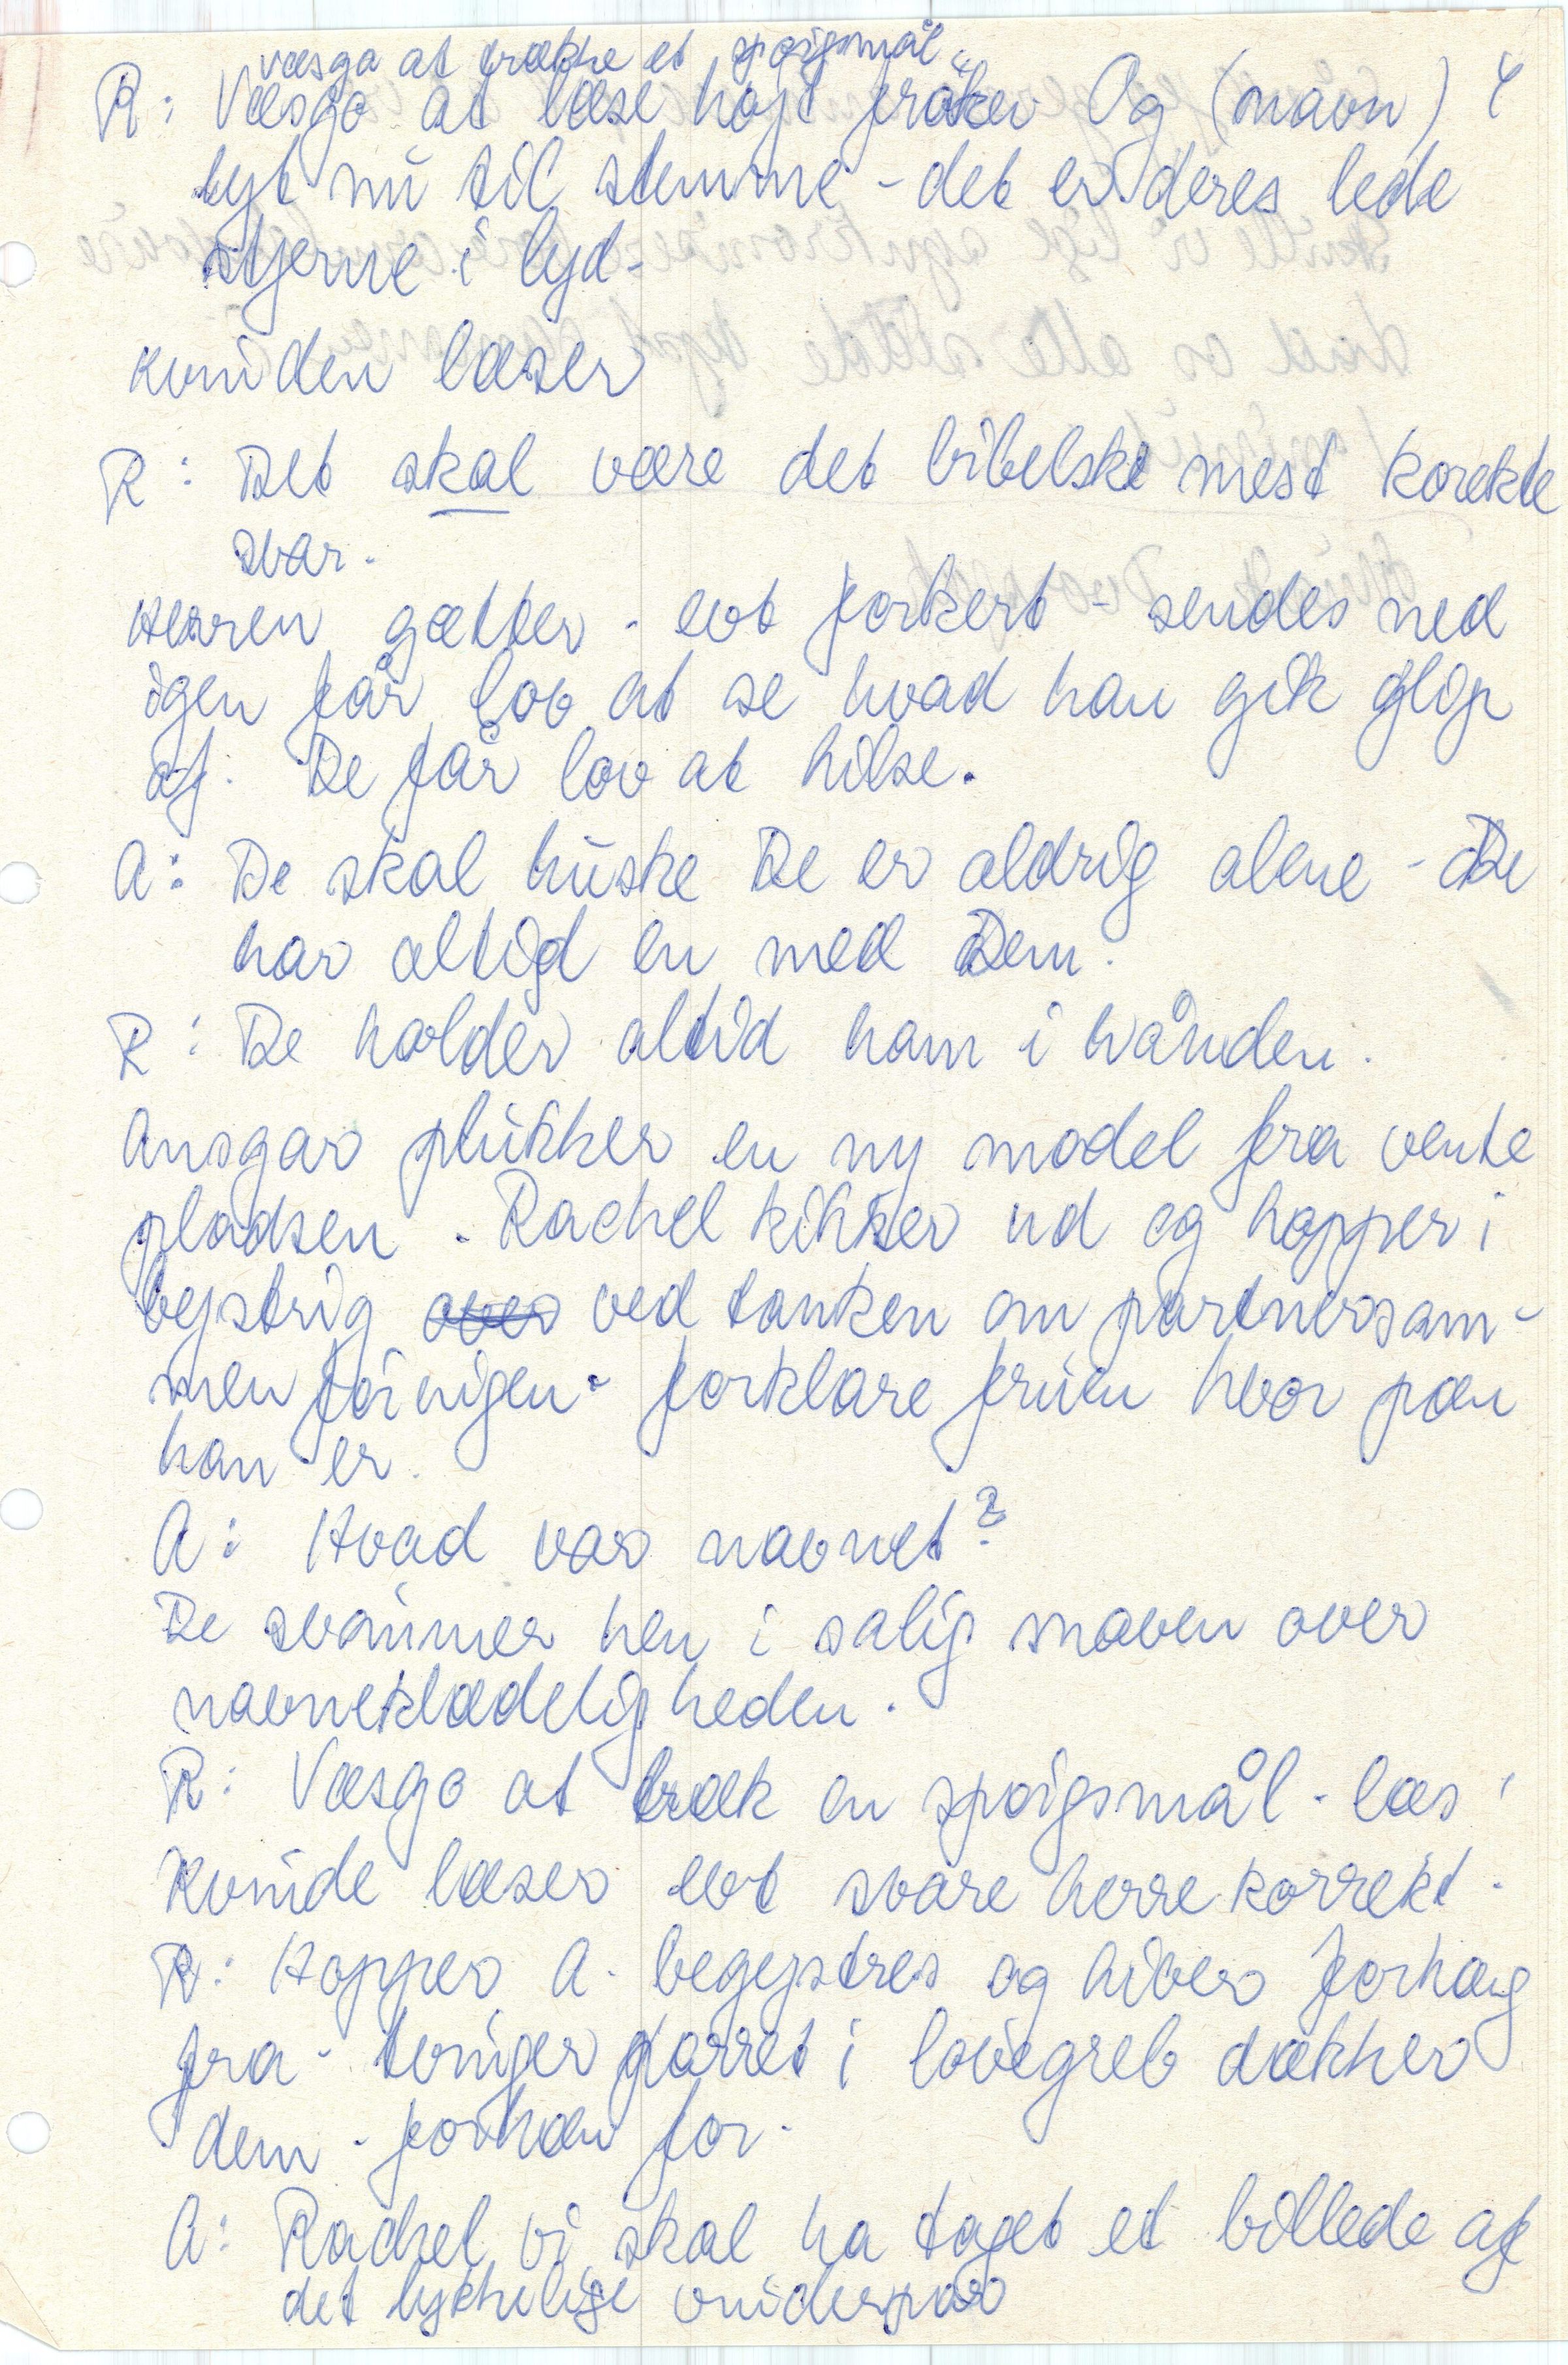 væsgo at trække et spøigsmål
R: Væsgo at læse højt frøken Og (navn)
lyt nu til stemme - det er deres lede
stjerne i lyd -
kvinden læser
R: Det skal være det bibelske mest korekte
svar.
Herren gætter - evt forkert - sendes ned
igen får lov at se hvad han gik glip
af. De får lov at hilse.
A: De skal huske De er aldrig alene - De
har altid en med Dem.
R: De holder altid ham i hånden.
Ansgar plukker en ny model fra vente
pladsen. Rachel kikker ud og hopper i
bejstrig over ved tanken om partnersam-
menføinigen. forklare fruen hvor pæn
han er.
A: Hvad var navnet?
De svømmer hen i salig snaven over
navneklædeligheden.
R: Væsgo at træk en spøigsmål - læs!
Kvinde læser evt svare herre korrekt.
R: Hopper A. begejstres og hiver forhæng
fra - tvinger parret i løvegreb dækker
dem - forhæn for.
A: Rachel vi skal ha taget et billede af
det lykkelige vniderpar